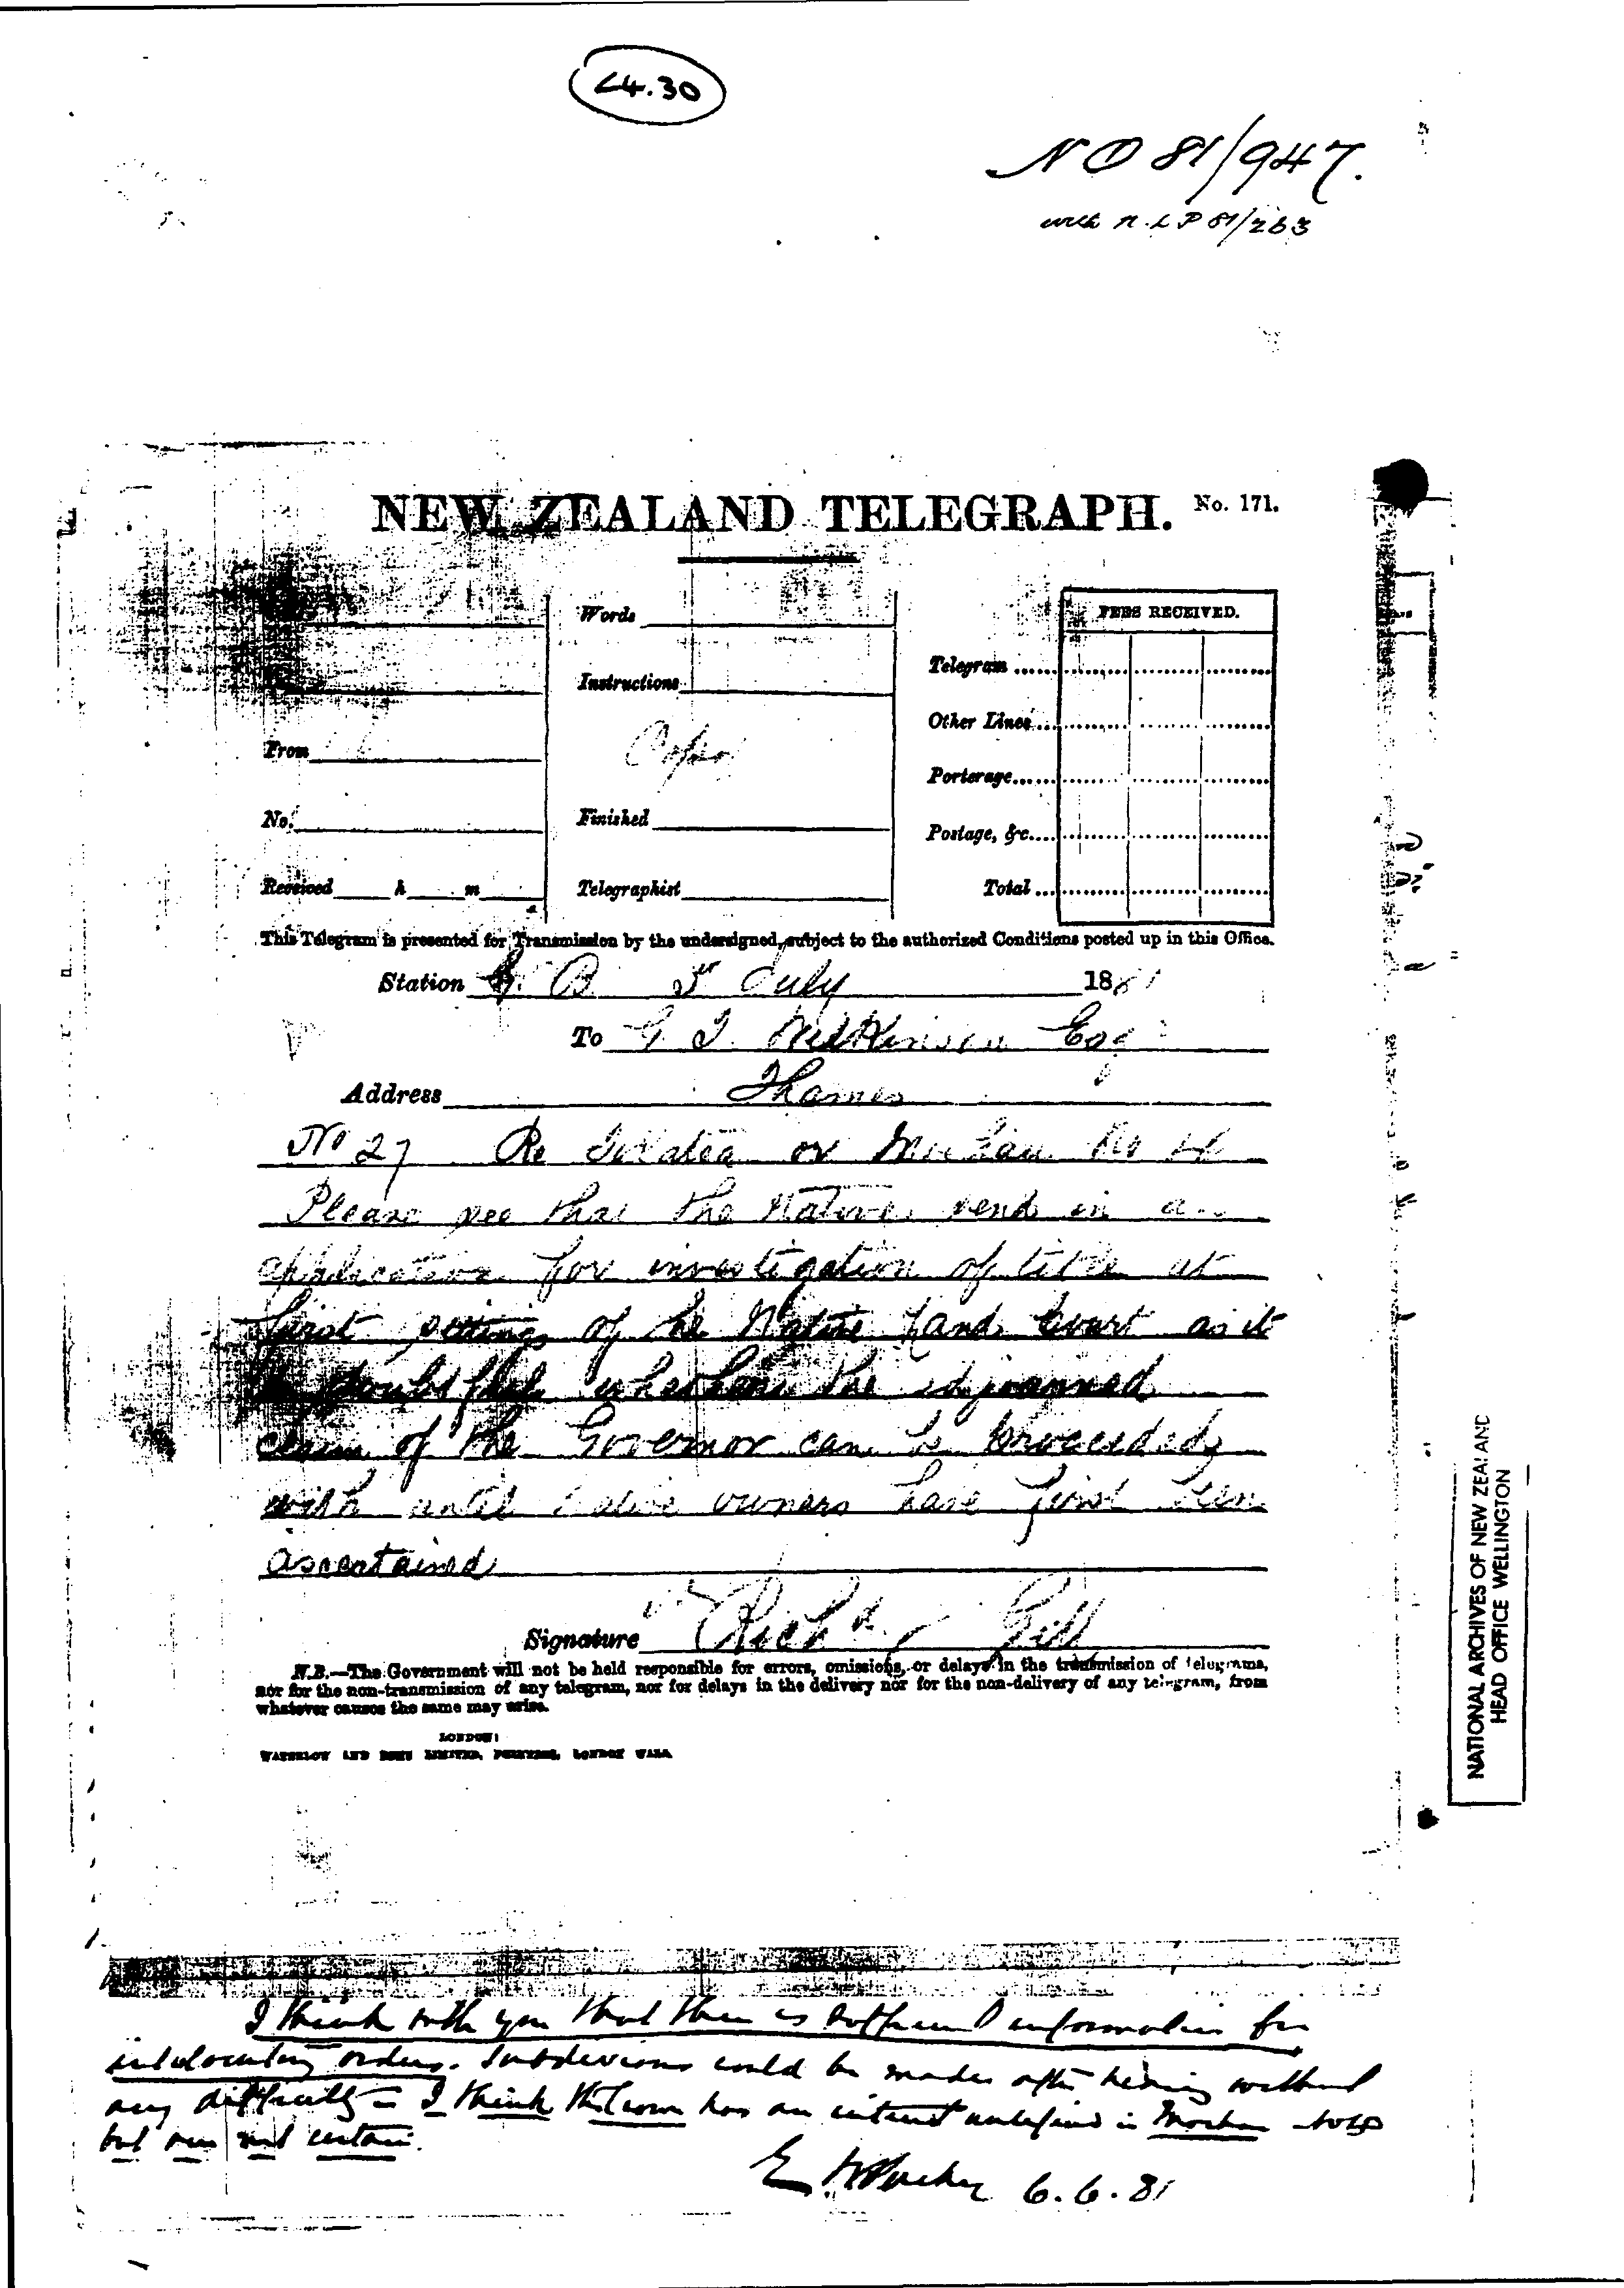 24.30
NO 81/947.
with N.L.P 81/263
NEW ZEALAND TELEGRAPH. No. 171.
FEES RECEIVED.
Words
Telegram
Instructions
Other Lines
From
Copy
Porterage
No.
Finished
Postage, &c.
Received h m
Telegraphist
Total
This Telegram is presented for Transmission by the undersigned, subject to the authorized Conditions posted up in this Office.
Station G. B. 5 July 1881
To G. T. Wilkinson Esq
Address Thames
No 27 Re or
Please see that the Natives send in
application for investigation of title at
first sittings of the Native Land Court as it
doubtful the adjourned
claim of the Governor can be proceeded
with until native owners have first been
ascertained
Signature Richd Gill
N.B.—The Government will not be held responsible for errors, omissions, or delays in the transmission of telegrams,
nor for the non-transmission of any telegram, nor for delays in the delivery nor for the non-delivery of any telegram, from
whatever causes the same may arise.
LONDON:
WATERLOW AND SONS LIMITED, PRINTERS, LONDON WALL
NATIONAL ARCHIVES OF NEW ZEALAND
HEAD OFFICE WELLINGTON
I think with you that there is sufficient information for
interlocutory orders. Subdivisions could be made after hearing without
any difficulty - I think the Crown has an interest undefined in
but am not certain.
6.6.81